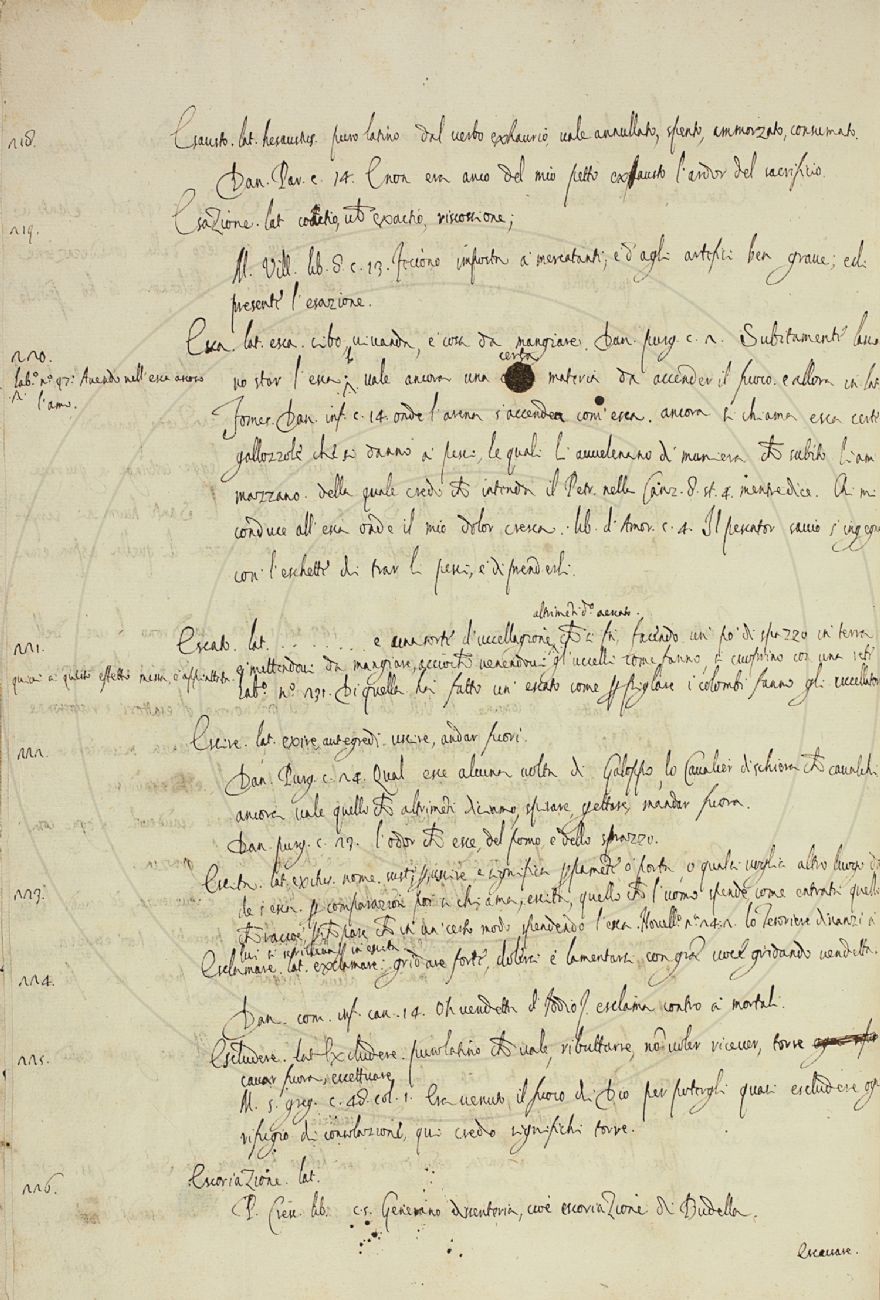 218. Esausto. lat. hexaustus. puro latino dal verbo exhaurio, vale annullato, spento, ammorzato, consumato.
Dan. Par. c. 14. E non era anco del mio petto exhausto l'ardor del sacrificio.
219. Esazione. lat exactio, riscossione;
M. Vill. lib. 8. c. 13. Feciono imposta a' mercatanti, e d'agli artefici ben grave; e di
presente l'esazione.
220. Esca. lat. esca. cibo, vivanda, e cosa da mangiare. Dan. purg. c. 2. Subitamente lasca
lab.º nº 97: Avendo nell'esca l'amo.
no star l'esca; vale ancora una certa materia da accender il fuoco. e allora in lat
Fomes. Dan. inf. c. 14. onde l'arena s'accendea com' esca. ancora si chiama esca certe
gallozzole che si danno ai pesci, le quali li avvelenano di maniera che subito li am
mazzano. della quale credo che intenda il Petr. nella Canz. 8. st. 4. mentre dice. Chi mi
conduce all'esca onde il mio dolor cresca. lib. d'Amor. c. 4. Il pescator savio s'ingegna
con l'eschette di trar li pesci, e di prenderli.
altrimẽti dº aescato.
221. Escato. lat. . . . . . . . . e una sorte d'uccellagione, che si fa, facendo un' po' di spazzo in terra
quivi a questo effetto messa, e
mettendovi da mangiare, acciochè venendovi gl'uccelli come fanno, si cuoprino con una rete
Lab.º nº 131. Di quella hai fatto un' escato come p pigliare i colombi fanno gli uccellatori
222. Escire. lat. exire, aut egredi. uscire, andar fuori.
Dan. Purg. c. 24. Qual esce alcuna volta di Galoppo, lo Cavalier di schiera che cavalchi
ancora vale quello che altrimẽti diciamo, spirare, gettare, mandar fuora.
Dan. purg. c. 23. l'odor che esce, del pomo, e dello sprazzo.
223. Escita. lat. exitus. nome. e significa o porta, o qualsi voglia altro luogo d
de s'esca. p comparazione poi si chiama, escita, quello che l'uomo spende, come entrata quello
che in un' certo modo spendendo l'esca. Novell. nº 14. lo Tesoriere dinanzi a
lui si in escita
224. Esclamare. lat. exclamare: gridare forte, dolersi e lamentarsi con gran voce gridando vendetta.
Dan. com. inf. can. 14. Oh vendetta d'Iddio! esclama contro ai mortali.
225. Escludere. lat excludere. puro latino che vale, ributtare, nõ voler ricever, torre
cavar fuora, eccettuare
M. s. greg. c. 48. col. 1. Era venuto il fuoco di Dio per potergli quasi escludere ogn
rifugio di consolazione, qui credo significhi torre.
226. Escoriazione. lat.
P. Cresc. lib. c. 5. Generano discenteria, cioè escoriazione di Budella.
Escusare.